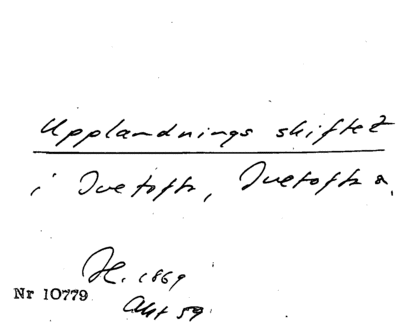 Upplandnings skiftet
i Ivetofta, Ivetofta s.
H. 1869
Nr 10779
Akt 59